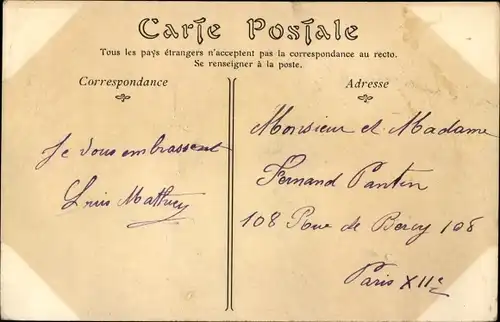 Carte Postale
Tous les pays étrangers n'acceptent pas la correspondance au recto.
Se renseigner à la poste.
Correspondance
Je vous embrassent
Louis
Adresse
Monsieur et Madame
Fernand Pantin
108 Rue de Bercy 108
Paris XIIe